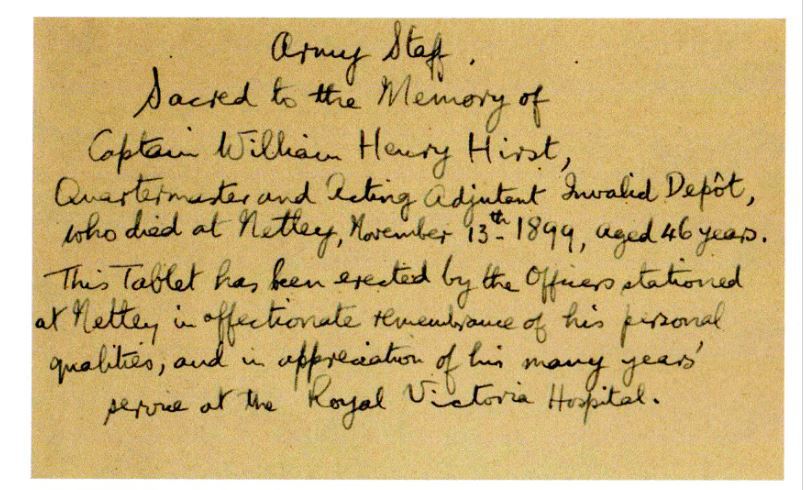 Army Staff.
Sacred to the Memory of
Captain William Henry Hirst,
Quartermaster and Acting Adjutant Invalid Depôt,
who died at Netley, November 13th 1899, aged 46 years.
This Tablet has been erected by the Officers stationed
at Netley in affectionate remembrance of his personal
qualities, and in appreciation of his many years'
service at the Royal Victoria Hospital.